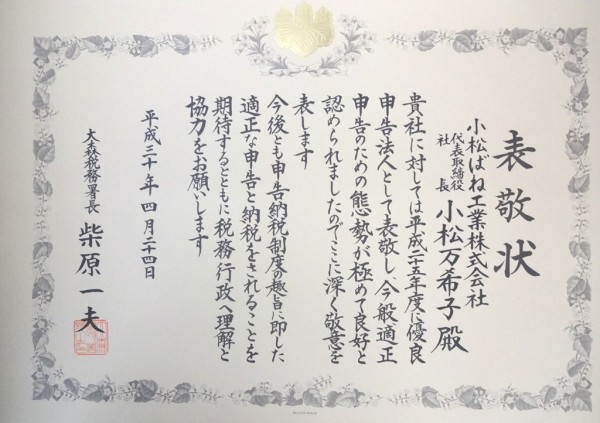 表敬状
小松ばね工業株式会社
代表取締役
社長
小松万希子殿
貴社に対しては平成二十五年度に優良
申告法人として表敬し、今般適正
申告のための態勢が極めて良好と
認められましたのでここに深く敬意を
表します
今後とも申告納税制度の趣旨に即した
適正な申告と納税をされることを
期待するとともに税務行政へ理解と
協力をお願いします
平成三十年四月二十四日
大森税務署長
柴原一夫